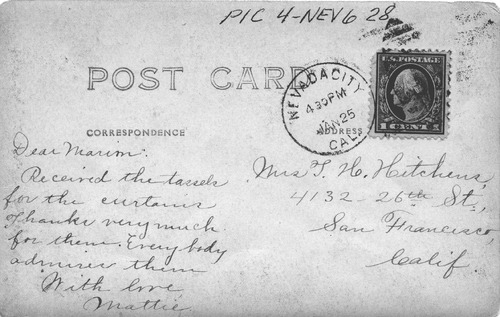 PIC 4-NEV6 28
POST CARD
NEVADA CITY
4 30 PM
JAN 25
CAL.
U.S. POSTAGE
1 CENT 1
CORRESPONDENCE
ADDRESS
Dear Marion:
Received the tassels
for the curtains
Thanks very much
for them. Everybody
admires them
With love
Mattie
Mrs T. H. Hitchens,
4132-26th St.,
San Francisco
Calif.